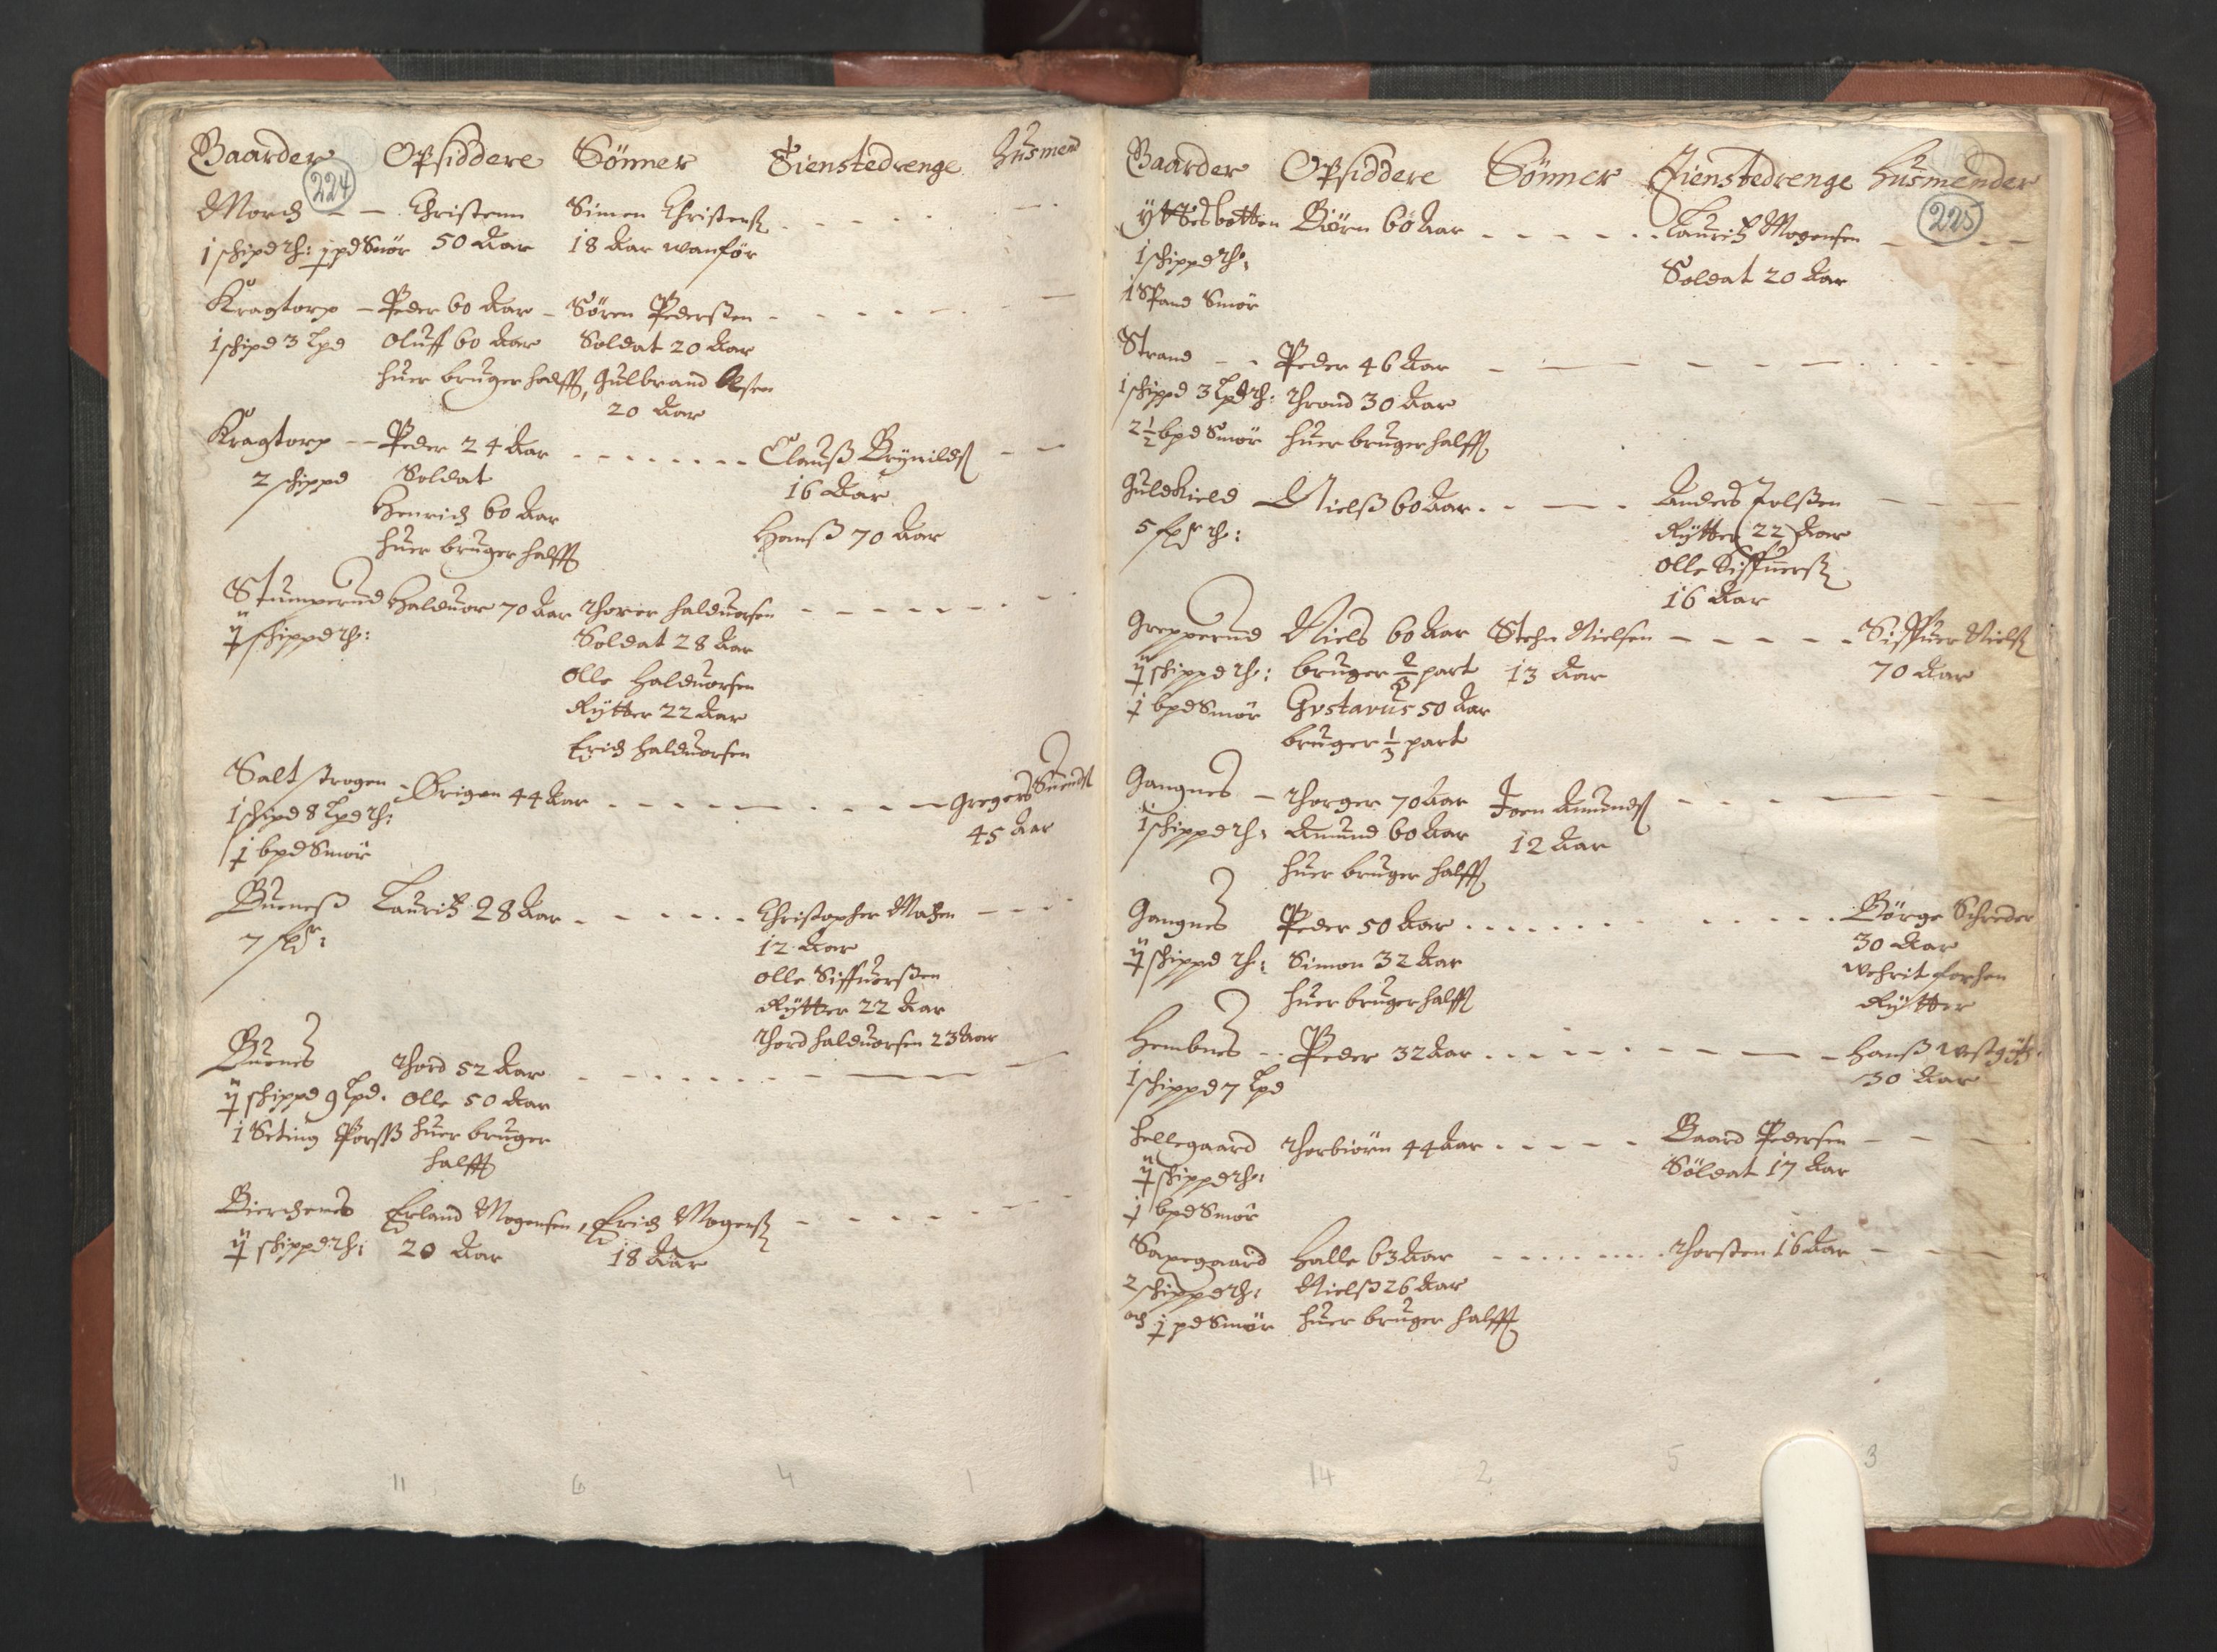 Gaarder Opsiddere Sönner Tienstedrenge Husmend
224
Morch - - Christenn Simen Christenß
1 schipd th: ½ pd Smör 50 Aar 18 Aar wanför
Kragtorp - Peder 60 Aar - Sören Pederßen
1 schipd 3 Lpd Oluff 60 Aar Soldat 20 Aar
huer bruger halfft, Gulbrand Olsen
20 Aar
Kragtorp - - Peder 24 Aar Clauß Brynilds
2 schippd Soldat 16 Aar
Henrich 60 Aar Hanß 70 Aar
huer bruger halfft
Stumperud Halduor 70 Aar Thorer Halduorsen
schippd th: Soldat 28 Aar
Olle Halduorsen
Rytter 22 Aar
Erich Halduorsen
Salt strogen - 44 Aar Gregers Suends
1 schipd 8 Lpd th: 45 Aar
½ bpd Smör
Bueneß Lauritz 28 Aar Christopher Madsen
7 12 Aar
Olle Siffuerßen
Rytter 22 Aar
Thord Halduorsen 23 Aar
Buenes Thord 52 Aar
schippd 9 Lpd. Olle 50 Aar
1 Seting huer bruger
halfft
Bierchenes Erland Mogensen, Erich Mogenß
schippd th: 20 Aar 18 Aar
11 6 4 1
Gaarder Opsiddere Sönner Tienstedrenge Husmender
225
Yttesbotten Biörn 60 Aar Lauritz Mogensen
1 schippd th: Soldat 20 Aar
1 Spand Smör
Strand - - Peder 46 Aar
1 schippd 3 Lpd th: Thrond 30 Aar
2½ bpd Smör huer bruger halfft
Guldkield Nielß 60 Aar Anders Joelßen
5 th: Rytter 22 Aar
Olle Siffuerß
16 Aar
Grepperud Niels 60 Aar Stehn Nielsen Siffuer Nielß
schippd th: bruger 2/3 part 13 Aar 70 Aar
½ bpd Smör Gustavus 50 Aar
bruger 1/3 part
Gangnes - Thorger 70 Aar Joen Amunds
1 schippd th: Amund 60 Aar 12 Aar
huer bruger halfft
Gangnes Peder 50 Aar Börge Schreder
schippd th: Simon 32 Aar 30 Aar
huer bruger halfft
Rytter
Hembnes - Peder 32 Aar Hanß
1 schippd 7 Lpd 30 Aar
Hellegaard Thorbiörn 44 Aar Baard Pedersen
schippd th: Soldat 17 Aar
½ bpd Smör
Saxegaard Halle 63 Aar Thorsten 16 Aar
2 schippd th: Nielß 26 Aar
och ½ pd Smör huer bruger halfft
14 2 5 3